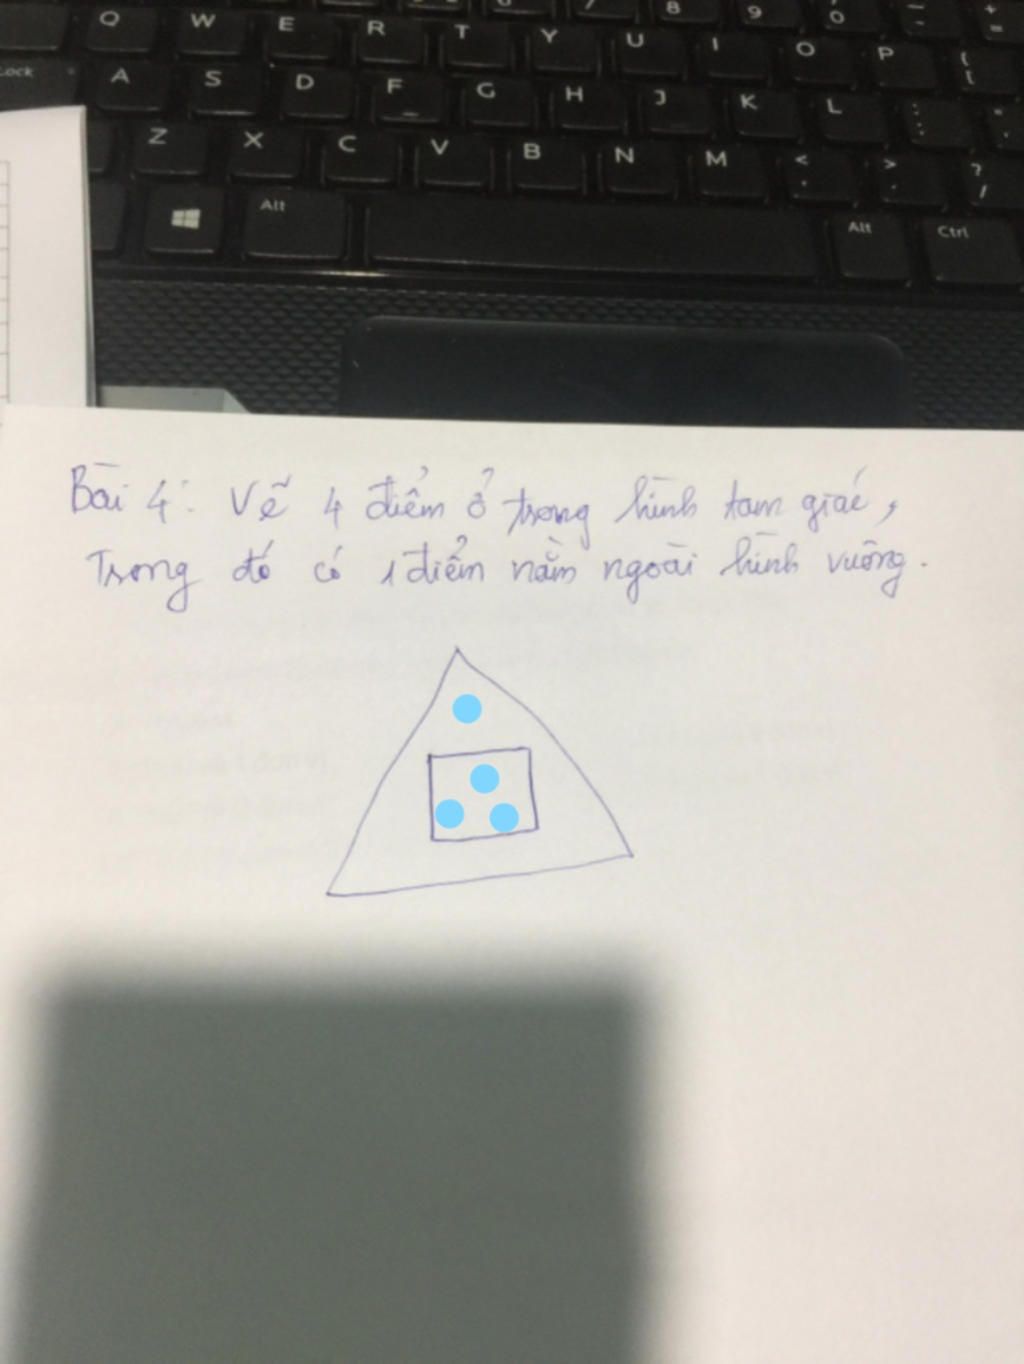 Q W E R T Y U I O P
Lock A S D F G H J K L
Z X C V B N M < >
Alt Alt Ctrl
Bài 4: Vẽ 4 điểm ở trong hình tam giác,
Trong đó có 1 điểm nằm ngoài hình vuông.